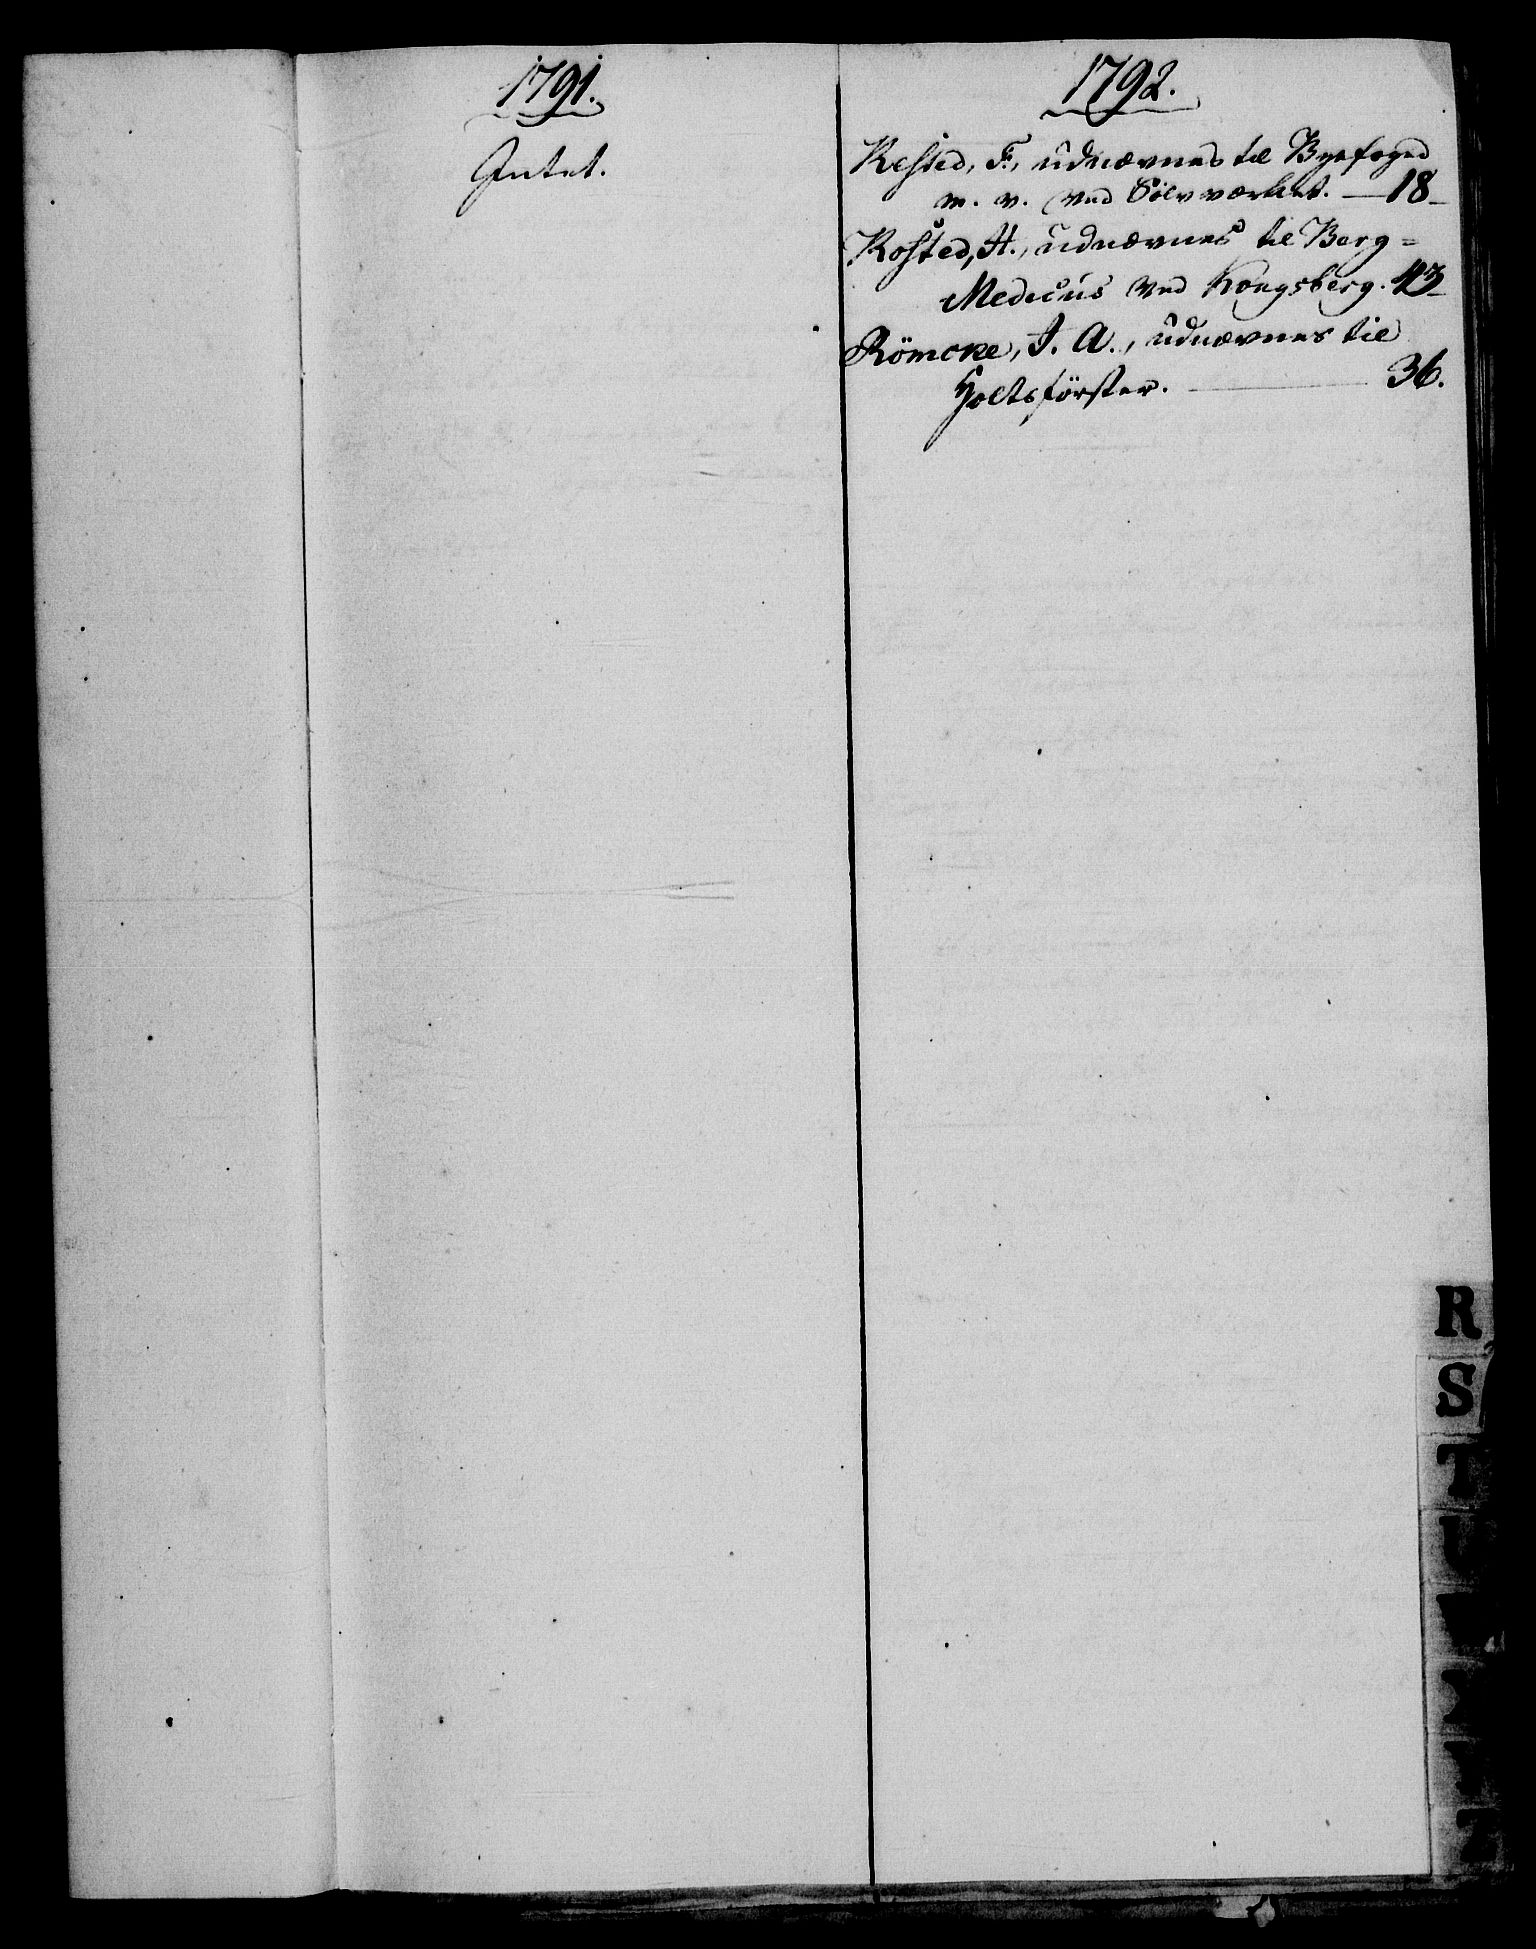 1791.
Intet.
1792.
Rested, F., udnævnes til Byefoged
m. v. ved Sölvværket. — 18_
Rosted, H., udnævnes til Berg=
Medicus ved Kongsberg. 43_
Römcke, J. A., udnævnes til
Holtsförster. — 36.
R
S
T
U
V
X
Y
Z